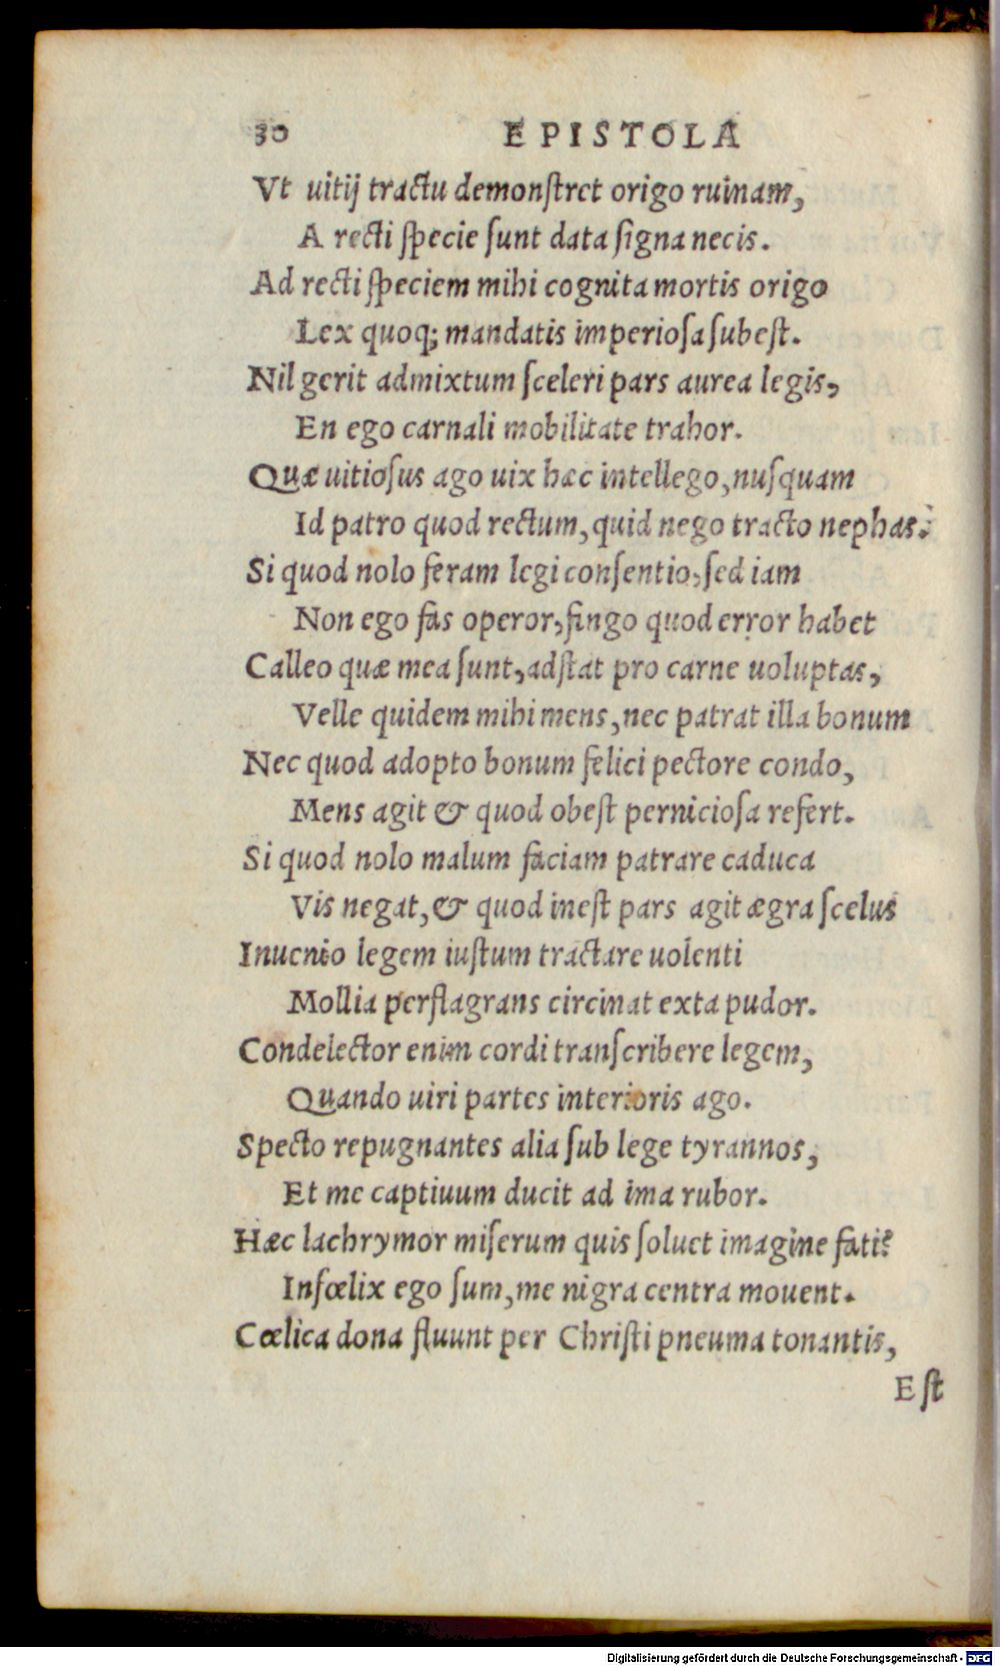 30 EPISTOLA
Vt uitij tractu demonſtret origo ruinam,
A recti ſpecie ſunt data ſigna necis.
Ad recti ſpeciem mihi cognita mortis origo
Lex quoq; mandatis imperioſa ſubeſt.
Nil gerit admixtum ſceleri pars aurea legis,
En ego carnali mobilitate trahor.
Quæ uitioſus ago uix hæc intellego, nuſquam
Id patro quod rectum, quid nego tracto nephas.
Si quod nolo feram legi conſentio, ſed iam
Non ego fas operor, fingo quod error habet
Calleo quæ mea ſunt, adſtat pro carne uoluptas,
Velle quidem mihi mens, nec patrat illa bonum
Nec quod adopto bonum felici pectore condo,
Mens agit & quod obeſt pernicioſa refert.
Si quod nolo malum faciam patrare caduca
Vis negat, & quod ineſt pars agit ægra ſcelus
Inuenio legem iuſtum tractare uolenti
Mollia perflagrans circinat exta pudor.
Condelector enim cordi tranſcribere legem,
Quando uiri partes interioris ago.
Specto repugnantes alia ſub lege tyrannos,
Et me captiuum ducit ad ima rubor.
Hæc lachrymor miſerum quis ſoluet imagine fati?
Infœlix ego ſum, me nigra centra mouent.
Cœlica dona fluunt per Chriſti pneuma tonantis,
Eſt
Digitalisierung gefördert durch die Deutsche Forschungsgemeinschaft - DFG